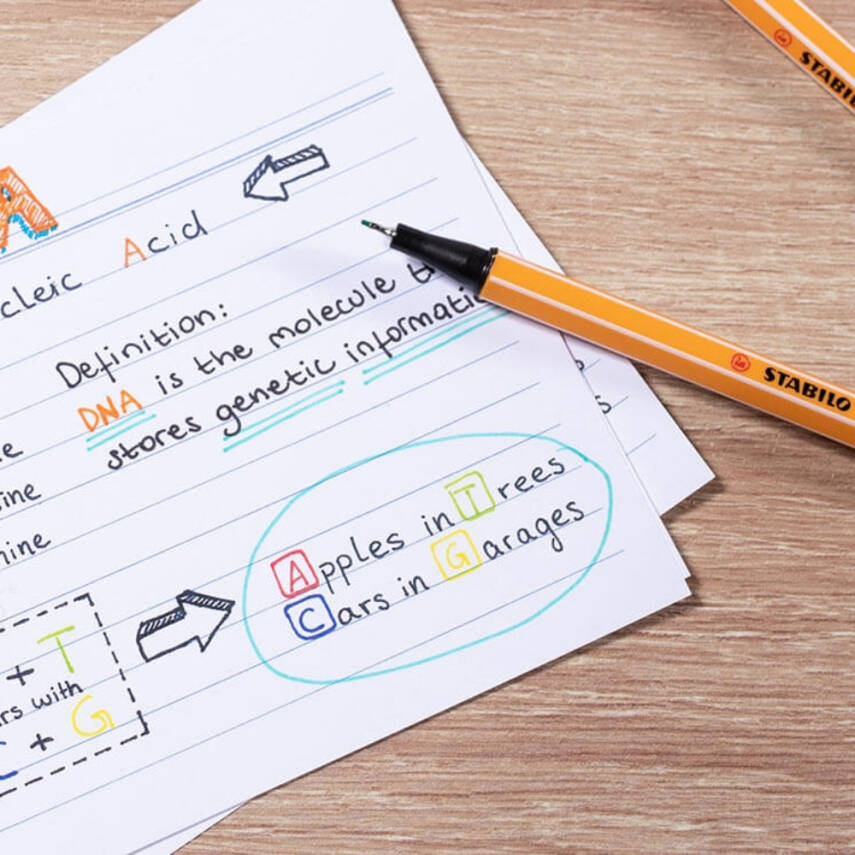 A
cleic Acid
Definition:
DNA is the molecule
stores genetic informati
ine
hine
Apples in Trees
Cars in Garages
+ T
rs with
C + G
STABILO
STABIL